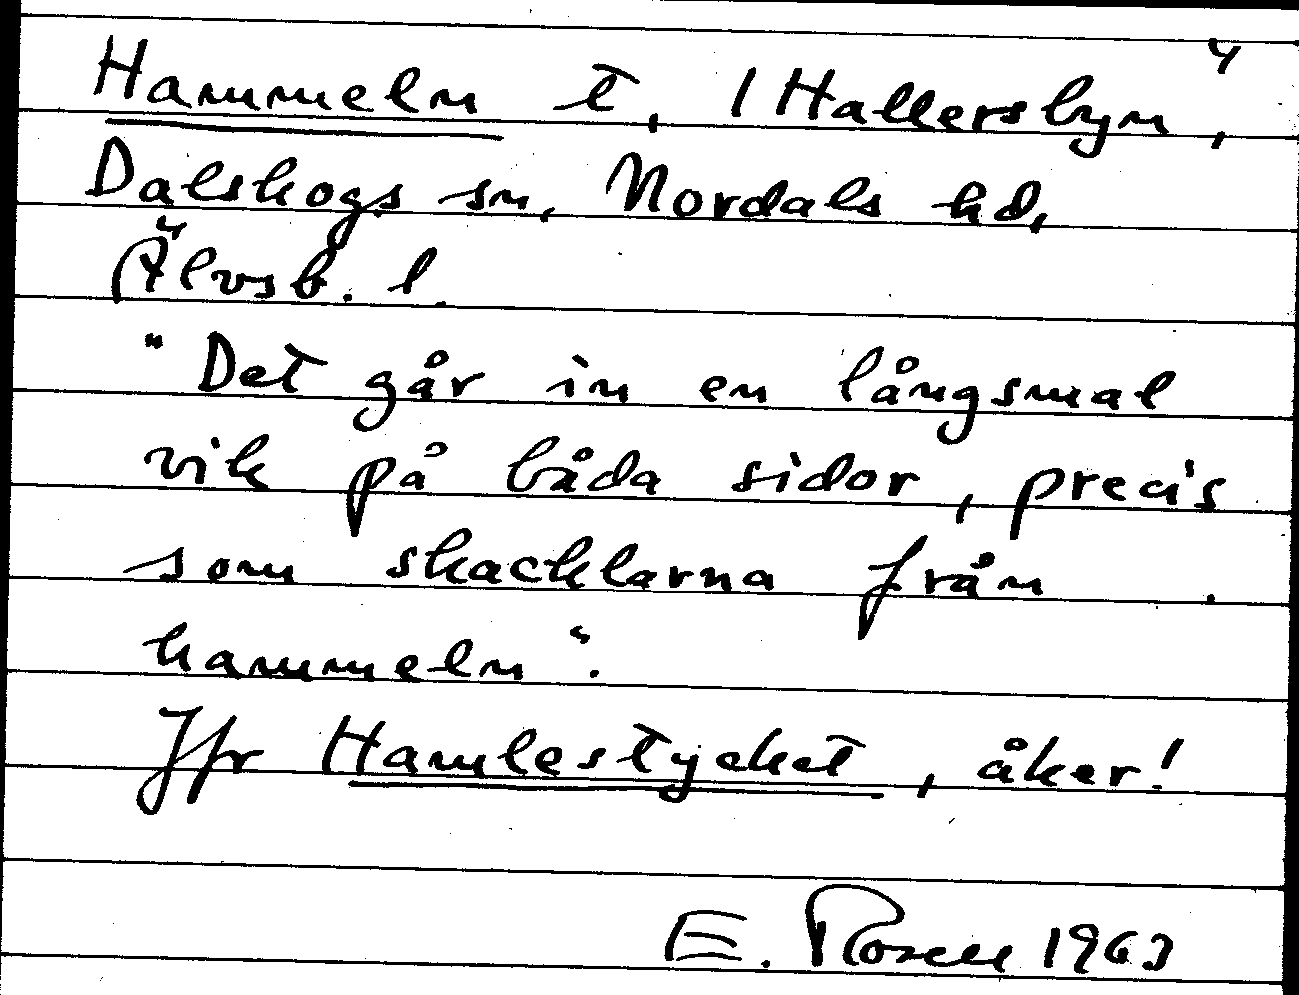 Hammeln t, 1 Hallersbyn 4,
Dalskogs sn, Nordals hd,
Älvsb. l.
"Det går in en långsmal
vik på båda sidor, precis
som skacklarna från
hammeln".
Jfr Hamlestycket, åker!
E. Rosell 1963